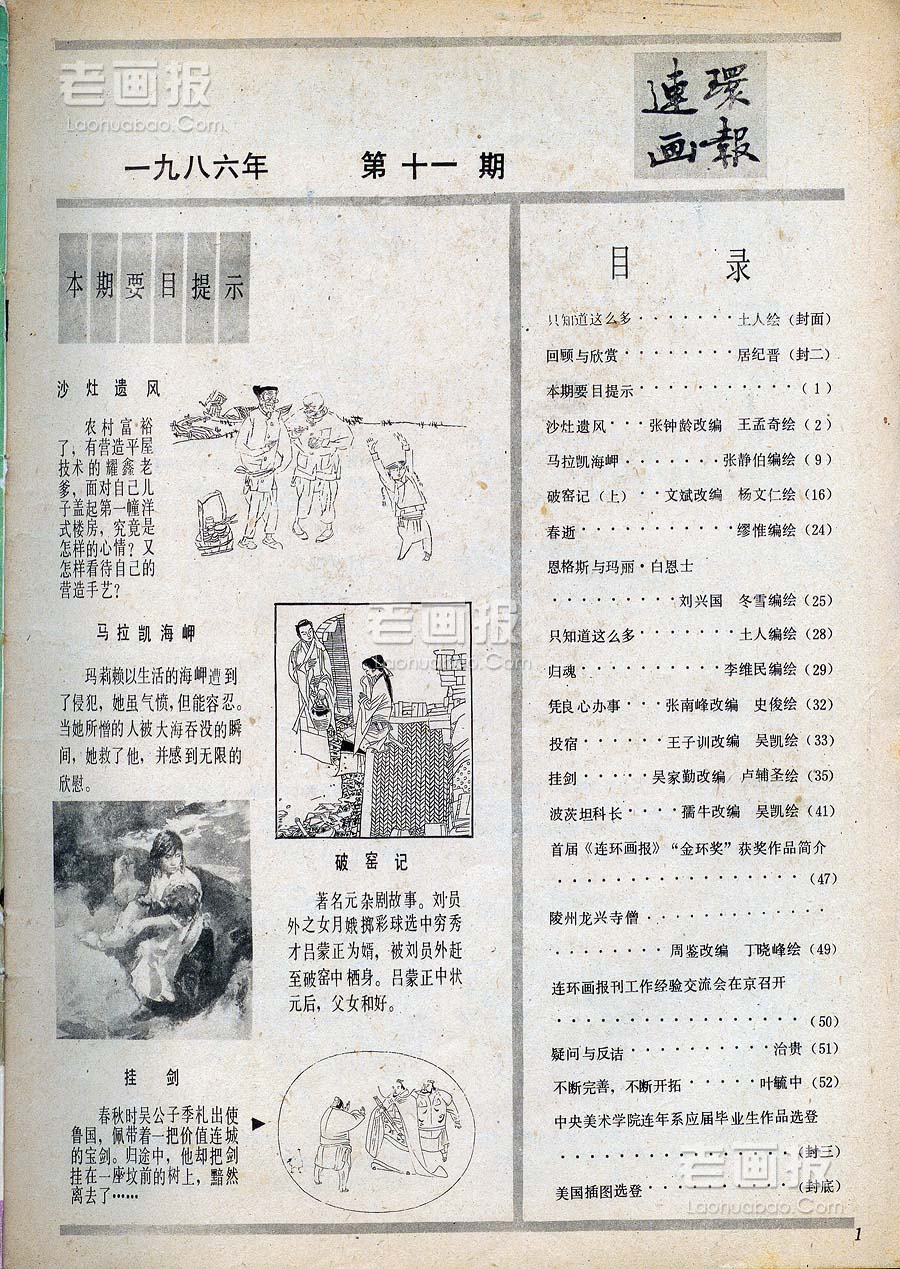 老画报
Laohuabao.Com
連環
画報
一九八六年 第十一期
本期要目提示
沙灶遗风
农村富裕
了，有营造平屋
技术的耀鑫老
爹，面对自己儿
子盖起第一幢洋
式楼房，究竟是
怎样的心情？又
怎样看待自己的
营造手艺？
马拉凯海岬
玛莉赖以生活的海岬遭到
了侵犯，她虽气愤，但能容忍。
当她所憎的人被大海吞没的瞬
间，她救了他，并感到无限的
欣慰。
老画报
Laohuabao.Com
破窑记
著名元杂剧故事。刘员
外之女月娥掷彩球选中穷秀
才吕蒙正为婿，被刘员外赶
至破窑中栖身。吕蒙正中状
元后，父女和好。
挂剑
春秋时吴公子季札出使
鲁国，佩带着一把价值连城
的宝剑。归途中，他却把剑
挂在一座坟前的树上，黯然
离去了……
目录
只知道这么多·······土人绘（封面）
回顾与欣赏········居纪晋（封二）
本期要目提示············（1）
沙灶遗风···张钟龄改编 王孟奇绘（2）
马拉凯海岬·······张静伯编绘（9）
破窑记（上）··文斌改编 杨文仁绘（16）
春逝···········缪惟编绘（24）
恩格斯与玛丽·白恩士
·········刘兴国 冬雪编绘（25）
只知道这么多·······土人编绘（28）
归魂··········李维民编绘（29）
凭良心办事···张南峰改编 史俊绘（32）
投宿······王子训改编 吴凯绘（33）
挂剑·····吴家勤改编 卢辅圣绘（35）
波茨坦科长····孺牛改编 吴凯绘（41）
首届《连环画报》“金环奖”获奖作品简介
·················（47）
陵州龙兴寺僧·············
········周鉴改编 丁晓峰绘（49）
连环画报刊工作经验交流会在京召开
·················（50）
疑问与反诘···········治贵（51）
不断完善，不断开拓·····叶毓中（52）
中央美术学院连年系应届毕业生作品选登
················（封三）
美国插图选登··········（封底）
老画报
Laohuabao.Com
1